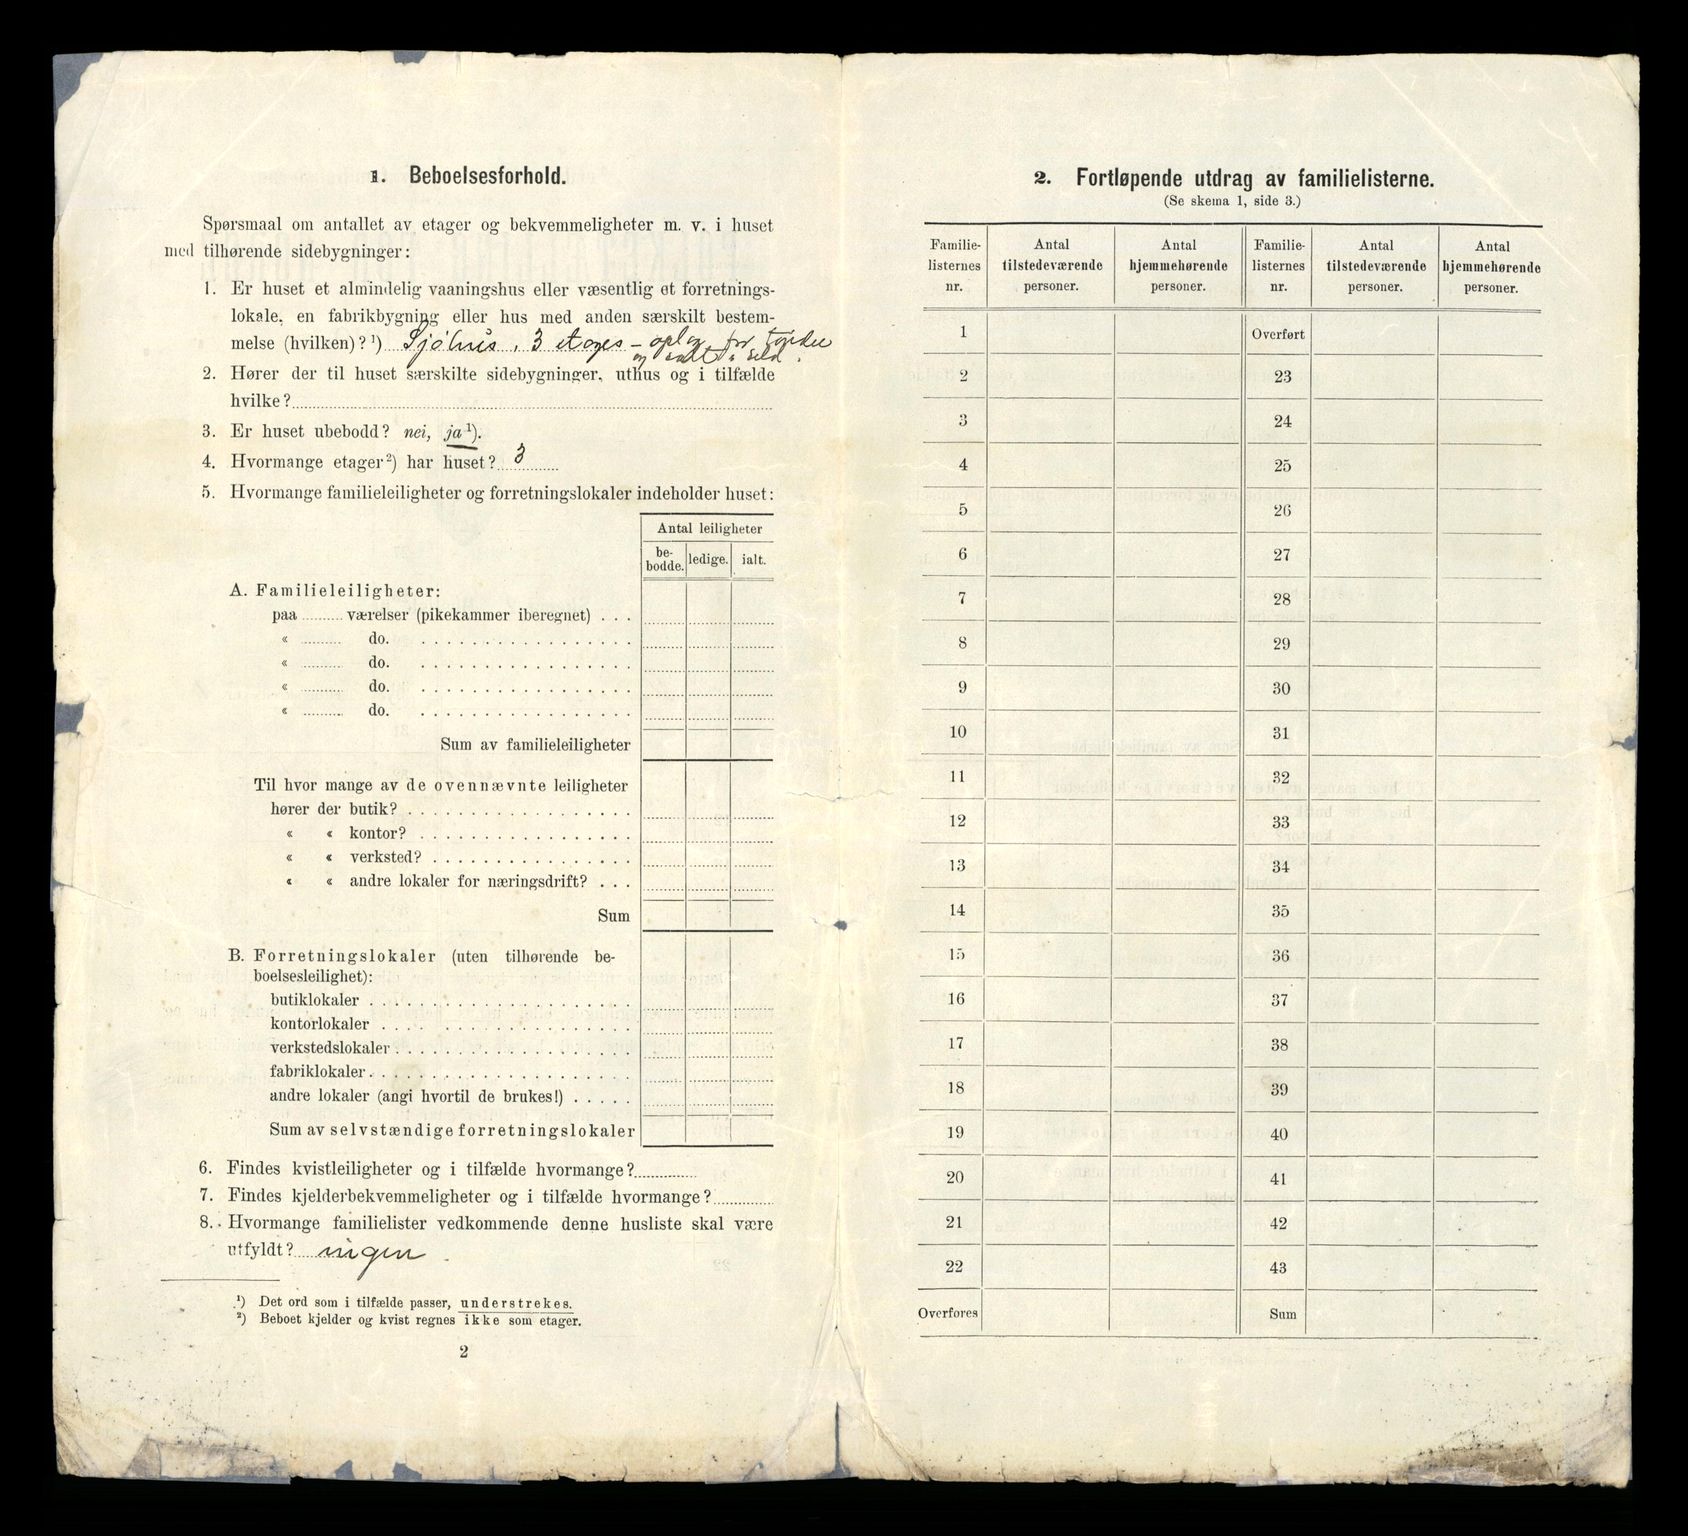 1. Beboelsesforhold.
Spørsmaal om antallet av etager og bekvemmeligheter m. v. i huset
med tilhørende sidebygninger:
1. Er huset et almindelig vaaningshus eller væsentlig et forretnings-
lokale, en fabrikbygning eller hus med anden særskilt bestem-
melse (hvilken)?¹) Sjöhus, 3 etages - oplag for tønder
og salt & sild.
2. Hører der til huset særskilte sidebygninger, uthus og i tilfælde
hvilke?
3. Er huset ubebodd? nei, ja¹).
4. Hvormange etager²) har huset? 3
5. Hvormange familieleiligheter og forretningslokaler indeholder huset:
Antal leiligheter
be-
bodde. ledige. ialt.
A. Familieleiligheter:
paa ........ værelser (pikekammer iberegnet) . . .
« ........ do. . . . . . . . . . . . . . .
« ........ do. . . . . . . . . . . . . . .
« ........ do. . . . . . . . . . . . . . .
« ........ do. . . . . . . . . . . . . . .
Sum av familieleiligheter
Til hvor mange av de ovennævnte leiligheter
hører der butik? . . . . . . . . . . . . . .
« « kontor? . . . . . . . . . . . . . .
« « verksted? . . . . . . . . . . . . .
« « andre lokaler for næringsdrift? . . .
Sum
B. Forretningslokaler (uten tilhørende be-
boelsesleilighet):
butiklokaler . . . . . . . . . . . . . . . .
kontorlokaler . . . . . . . . . . . . . . .
verkstedslokaler . . . . . . . . . . . . . .
fabriklokaler . . . . . . . . . . . . . . . .
andre lokaler (angi hvortil de brukes!) . . . . .
Sum av selvstændige forretningslokaler
6. Findes kvistleiligheter og i tilfælde hvormange?
7. Findes kjelderbekvemmeligheter og i tilfælde hvormange?
8. Hvormange familielister vedkommende denne husliste skal være
utfyldt? ingen
¹) Det ord som i tilfælde passer, understrekes.
²) Beboet kjelder og kvist regnes ikke som etager.
2
2. Fortløpende utdrag av familielisterne.
(Se skema 1, side 3.)
Familie- Antal Antal Familie- Antal Antal
listernes tilstedeværende hjemmehørende listernes tilstedeværende hjemmehørende
nr. personer. personer. nr. personer. personer.
1 Overført
2 23
3 24
4 25
5 26
6 27
7 28
8 29
9 30
10 31
11 32
12 33
13 34
14 35
15 36
16 37
17 38
18 39
19 40
20 41
21 42
22 43
Overføres Sum